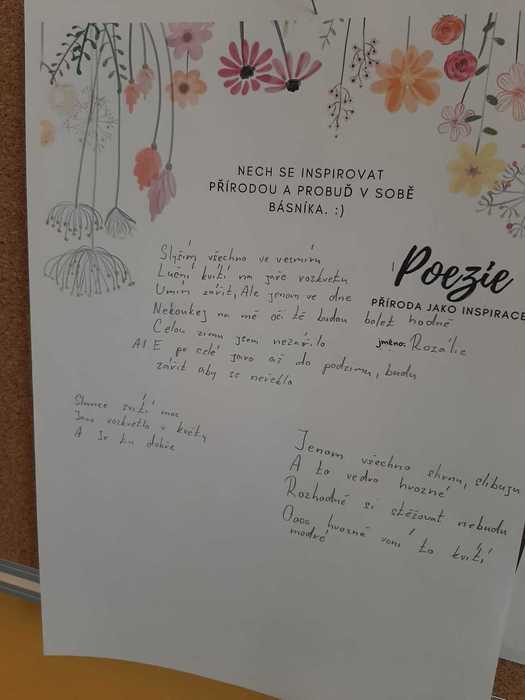 NECH SE INSPIROVAT
PŘÍRODOU A PROBUĎ V SOBĚ
BÁSNÍKA. :)
Poezie
PŘÍRODA JAKO INSPIRACE
jméno: Rozálie
Slyším všechno ve vesmíru
Luční kvítí na jaře rozkvetu
Umím zářit, Ale jenom ve dne
Nekoukej na mě oči tě budou bolet hodně
Celou zimu jsem nezářilo
ALE po celé jaro až do podzimu, budu
zářit aby se neřeklo
Slunce svítí moc
Jaro rozkvetlo v květy
A je tu dobře
Jenom všechno shrnu, slibuju
A to vedro hrozné
Rozhodně si stěžovat nebudu
Oooo hrozně voní to kvítí
modré